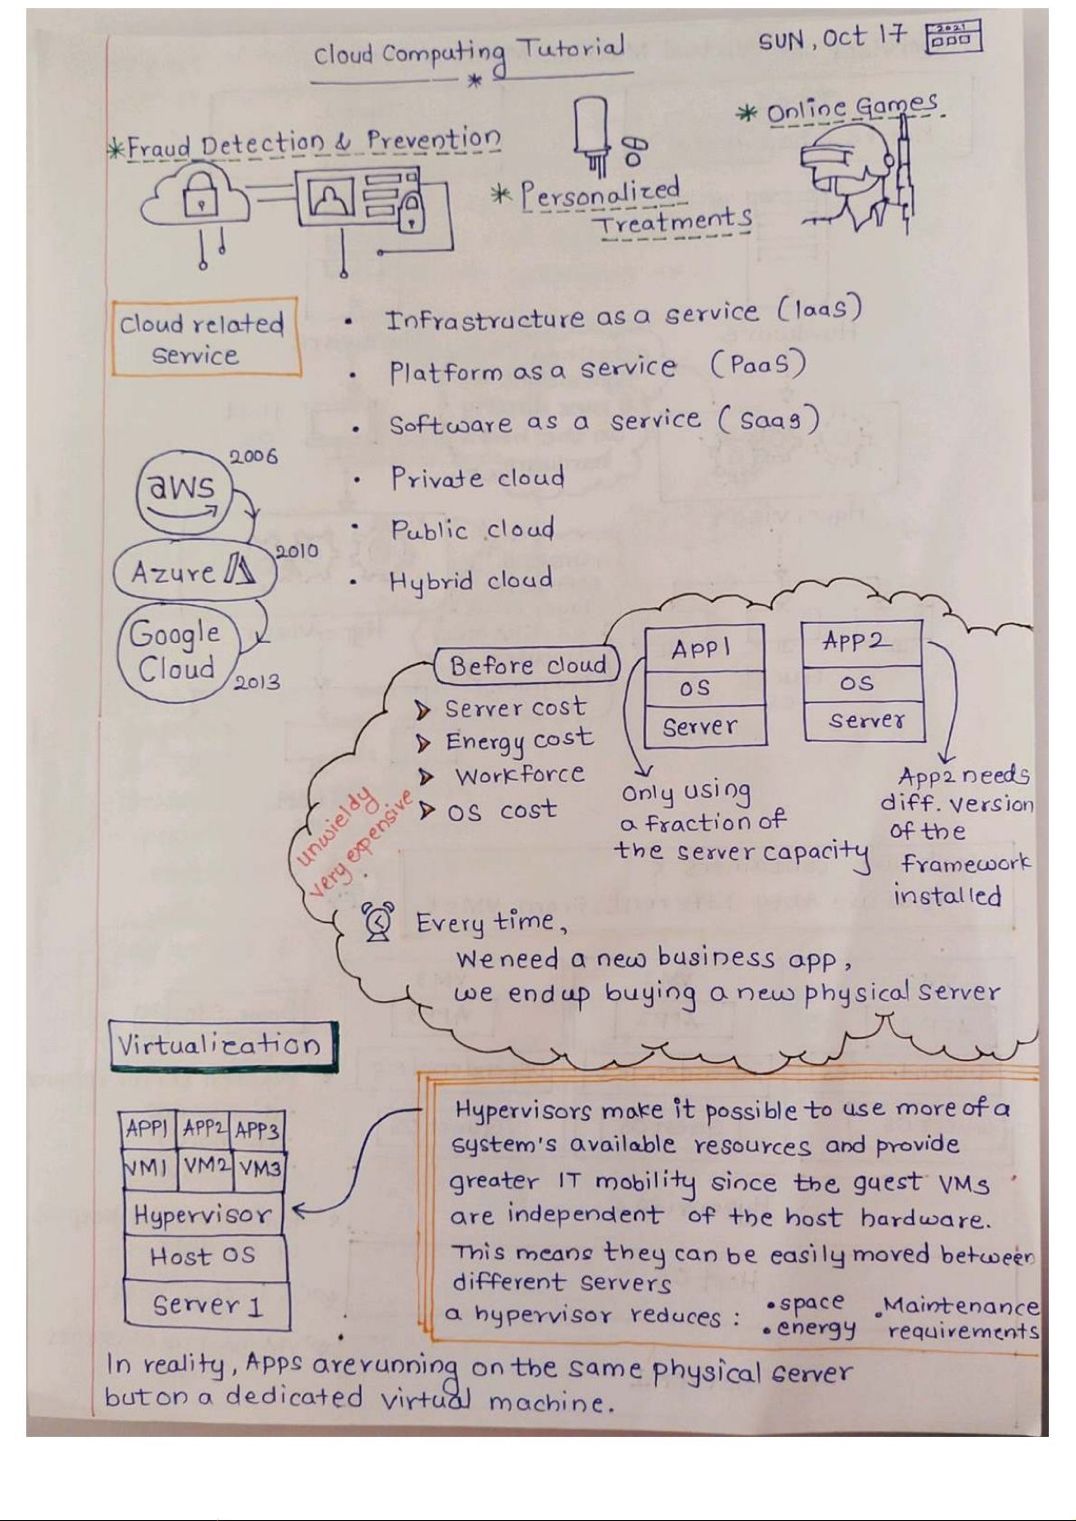 Cloud Computing Tutorial
SUN, Oct 17
2021
* Fraud Detection & Prevention
* Personalized
Treatments
* Online Games
Cloud related
service
• Infrastructure as a service (IaaS)
• Platform as a service (PaaS)
• Software as a service (SaaS)
• Private cloud
• Public cloud
• Hybrid cloud
aws
2006
Azure
2010
Google
Cloud
2013
Before cloud
Server cost
Energy cost
Workforce
OS cost
unwieldy
very expensive
APP1
OS
Server
APP2
OS
Server
Only using
a fraction of
the server capacity
App2 needs
diff. version
of the
framework
installed
Every time,
We need a new business app,
we end up buying a new physical server
Virtualization
APP1 APP2 APP3
VM1 VM2 VM3
Hypervisor
Host OS
Server 1
Hypervisors make it possible to use more of a
system's available resources and provide
greater IT mobility since the guest VMs
are independent of the host hardware.
This means they can be easily moved between
different servers
a hypervisor reduces : • space • Maintenance
• energy requirements
In reality, Apps are running on the same physical server
but on a dedicated virtual machine.